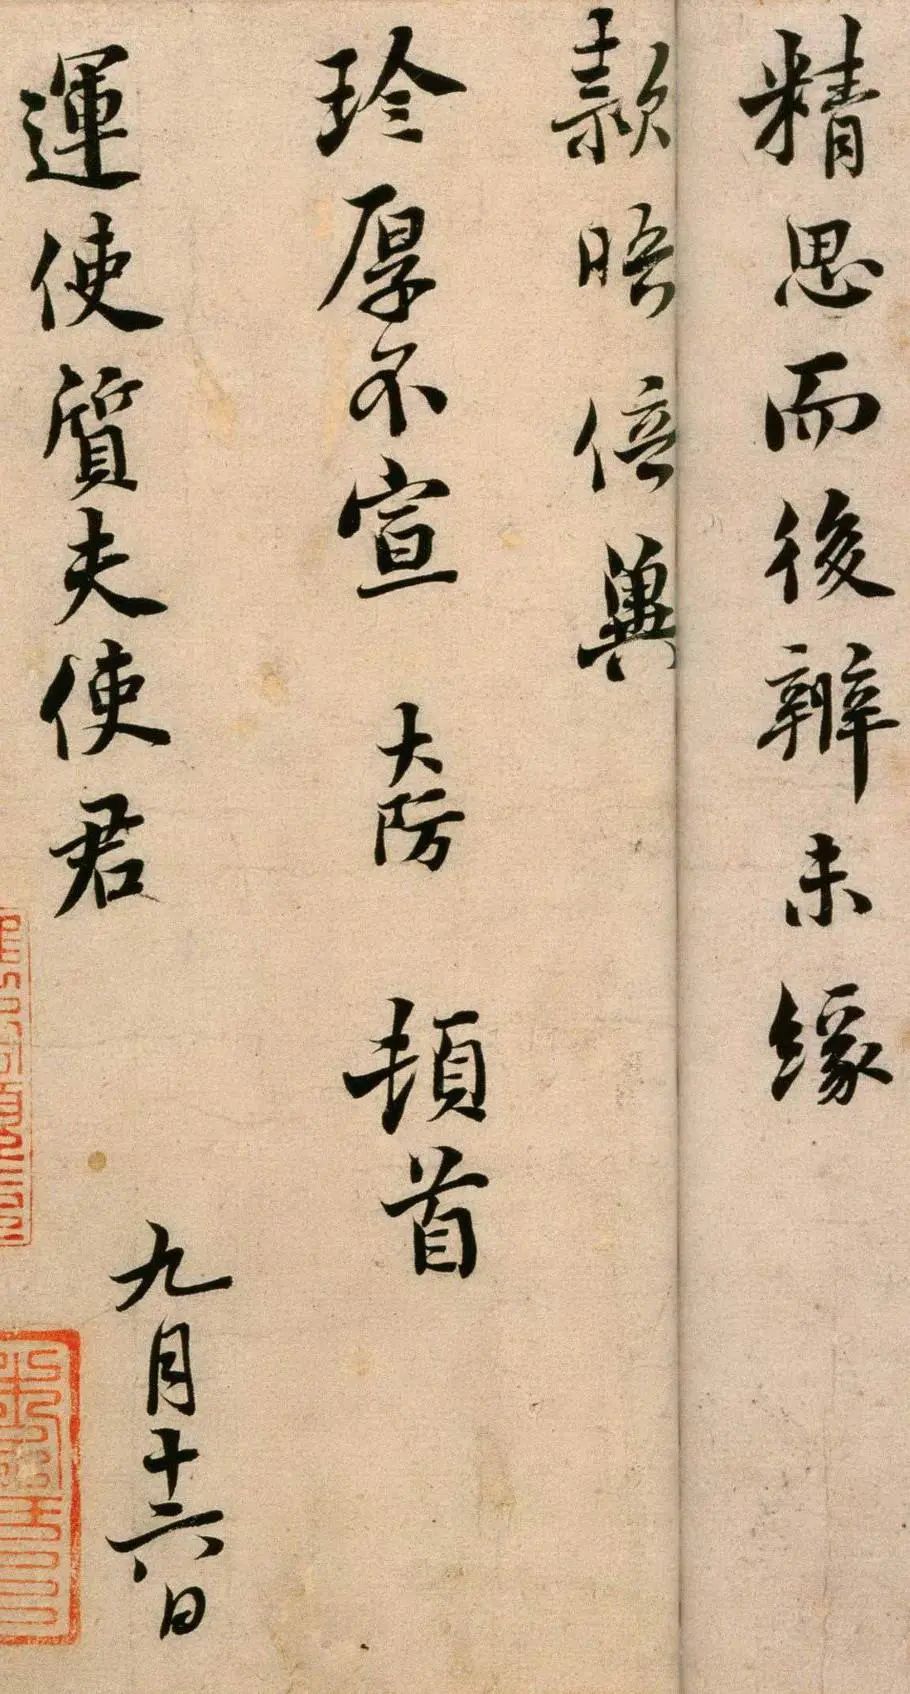 精思而後辨未緣
款晤倍冀
珍厚不宣 大防 頓首
運使質夫使君 九月十六日